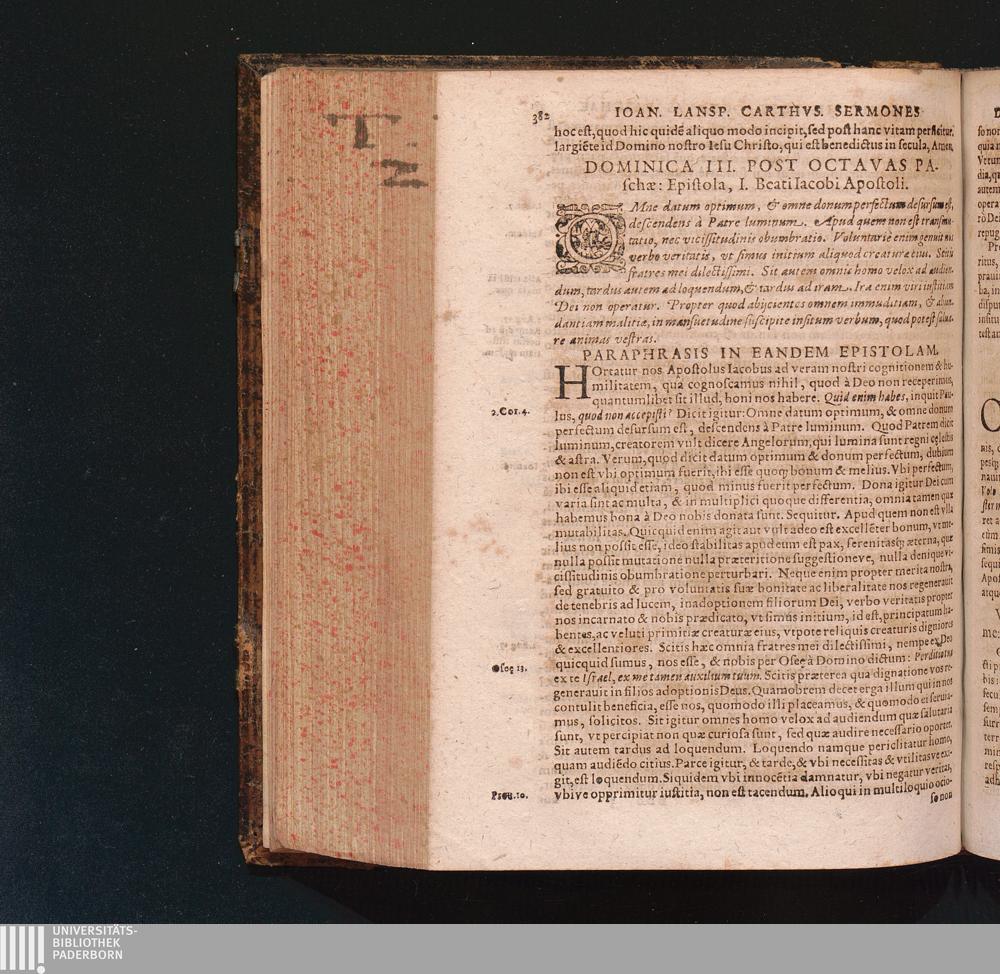 T
N
382 IOAN. LANSP. CARTHVS. SERMONES
hoc est, quod hic quidē aliquo modo incipit, sed post hanc vitam perficitur.
largiēte id Domino nostro Iesu Christo, qui est benedictus in secula, Amen.
DOMINICA III. POST OCTAVAS PA-
schæ: Epistola, I. Beati Iacobi Apostoli.
OMne datum optimum, & omne donum perfectum desursum est,
descendens à Patre luminum. Apud quem non est transmu-
tatio, nec vicissitudinis obumbratio. Voluntariè enim genuit nos
verbo veritatis, vt simus initium aliquod creaturæ eius. Scitis
fratres mei dilectissimi. Sit autem omnis homo velox ad audien-
dum, tardus autem ad loquendum, & tardus ad iram. Ira enim viri iustitiam
Dei non operatur. Propter quod abijcientes omnem immuditiam, & abun-
dantiam malitiæ, in mansuetudine suscipite insitum verbum, quod potest salua-
re animas vestras.
PARAPHRASIS IN EANDEM EPISTOLAM.
HOrtatur nos Apostolus Iacobus ad veram nostri cognitionem & hu-
militatem, qua cognoscamus nihil, quod à Deo non receperimus,
quantumlibet sit illud, boni nos habere. Quid enim habes, inquit Pau-
2.Cor.4. lus, quod non accepisti? Dicit igitur: Omne datum optimum, & omne donum
perfectum desursum est, descendens à Patre luminum. Quod Patrem dicit
luminum, creatorem vult dicere Angelorum, qui lumina sunt regni cęlestis
& astra. Verum, quod dicit datum optimum & donum perfectum, dubium
non est vbi optimum fuerit, ibi esse quoq; bonum & melius. Vbi perfectum,
ibi esse aliquid etiam, quod minus fuerit perfectum. Dona igitur Dei cum
varia sint ac multa, & in multiplici quoque differentia, omnia tamen quæ
habemus bona à Deo nobis donata sunt. Sequitur. Apud quem non est vlla
mutabilitas. Quicquid enim agit aut vult adeo est excellēter bonum, vt me-
lius non possit esse, ideo stabilitas apud eum est pax, serenitasq; æterna, quæ
nulla possit mutatione nulla præteritione suggestioneve, nulla denique vi-
cissitudinis obumbratione perturbari. Neque enim propter merita nostra,
sed gratuito & pro voluntatis suæ bonitate ac liberalitate nos regenerauit
de tenebris ad lucem, in adoptionem filiorum Dei, verbo veritatis propter
nos incarnato & nobis prædicato, vt simus initium, id est, principatum ha-
bentes, ac veluti primitiæ creaturæ eius, vtpote reliquis creaturis digniores
& excellentiores. Scitis hæc omnia fratres mei dilectissimi, nempe ex Deo
quicquid sumus, nos esse, & nobis per Oseę à Domino dictum: Perditio tua
Oseę 13. ex te Israel, ex me tamen auxilium tuum. Scitis præterea qua dignatione vos re-
generauit in filios adoptionis Deus. Quamobrem decet erga illum qui in nos
contulit beneficia, esse nos, quomodo illi placeamus, & quomodo ei seruia-
mus, solicitos. Sit igitur omnes homo velox ad audiendum quæ salutaria
sunt, vt percipiat non quæ curiosa sunt, sed quæ audire necessario oportet.
Sit autem tardus ad loquendum. Loquendo namque periclitatur homo,
quam audiēdo citius. Parce igitur, & tarde, & vbi necessitas & vtilitas ve exi-
git, est loquendum. Siquidem vbi innocētia damnatur, vbi negatur veritas,
Prou.10. vbi ve opprimitur iustitia, non est tacendum. Alioqui in multiloquio ocio-
so non
UNIVERSITÄTS-
BIBLIOTHEK
PADERBORN